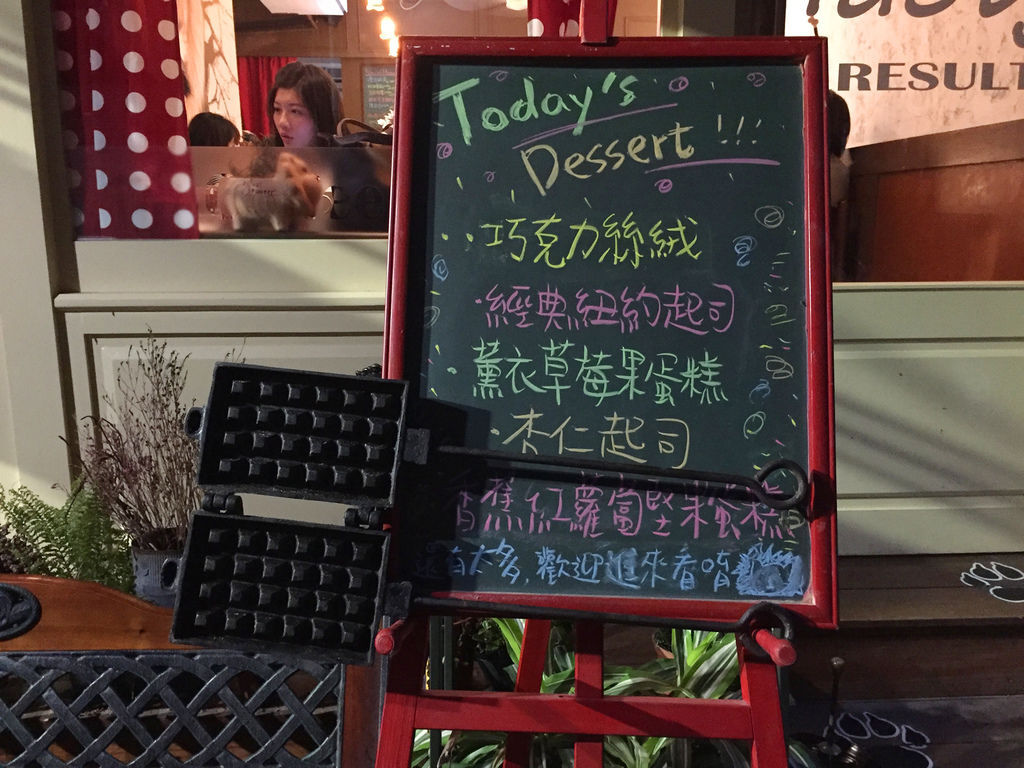 RESULT
Today's
Dessert !!!
巧克力絲絨
經典紐約起司
薰衣草莓果蛋糕
杏仁起司
香蕉紅蘿蔔堅果蛋糕
還有太多,歡迎進來看唷